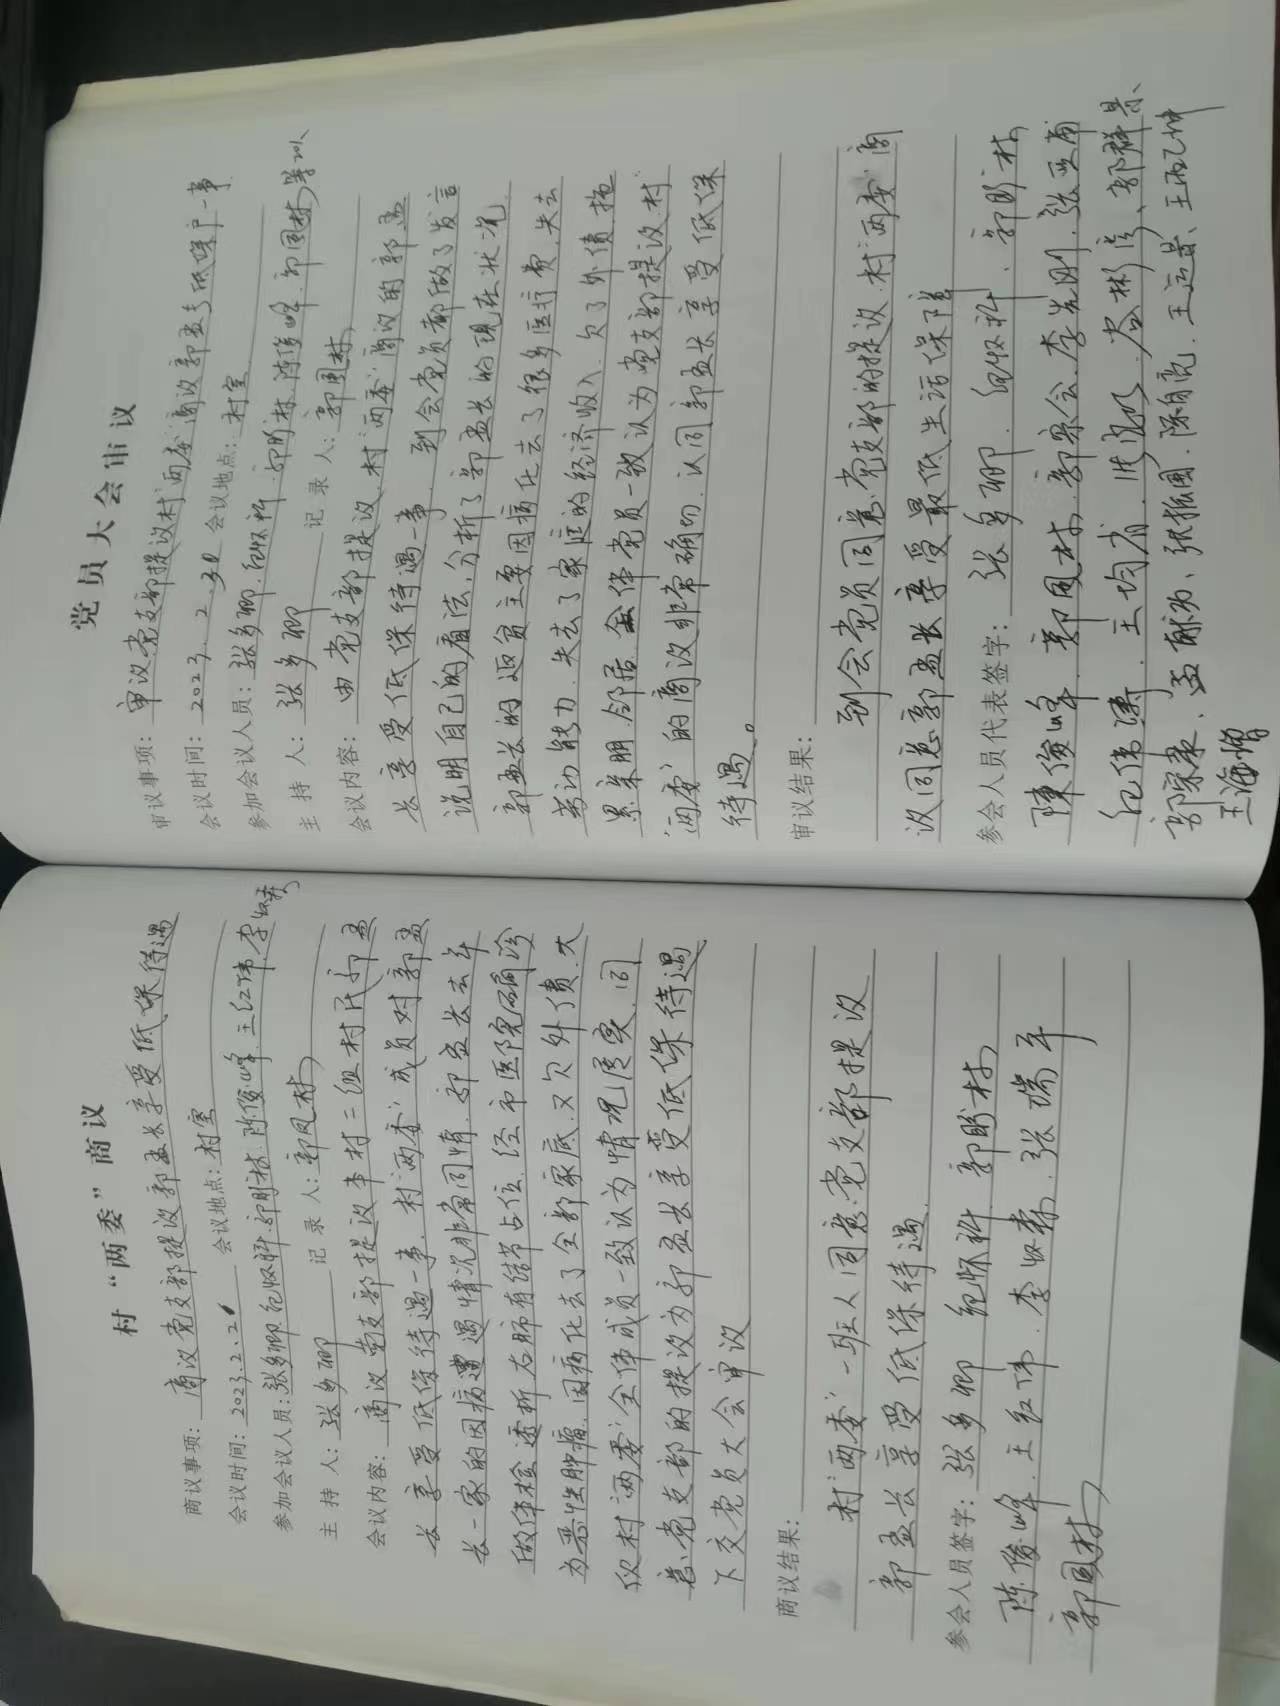 村“两委”商议
商议事项：商议党支部提议郭孟长享受低保待遇
会议时间：2023.2.2 会议地点：村室
参加会议人员：张多卿.纪怀科.郭明林.陈俊峰.王红伟.李
主 持 人：张多卿 记 录 人：郭凤林
会议内容：商议党支部提议本村三组村民郭孟
长享受低保待遇一事.村“两委”成员对郭孟
长一家的因病遭遇情况非常同情.郭孟长去年
做体检透析右肺有结节占位.经市医院确诊
为恶性肿瘤.因病化去了全部家底.又欠外债.大
仪村“两委”全体成员一致认为情况属实.同
意党支部的提议为郭孟长享受低保待遇
下交党员大会审议
商议结果：
村“两委”一班人同意党支部提议
郭孟长享受低保待遇.
参会人员签字：张多卿 纪怀科 郭明林
陈俊峰.王红伟.李 .张瑞平
郭凤林
党员大会审议
审议事项：审议党支部提议村“两委”商议郭孟长低保户一事
会议时间：2023.2.3日 会议地点：村室
参加会议人员：张多卿.纪怀科.郭明林.陈俊峰.郭凤林等20人
主 持 人：张多卿 记 录 人：郭凤林
会议内容：由党支部提议.村“两委”商议的郭孟
长享受低保待遇一事.到会党员都做了发言
说明自己的看法.分析了郭孟长的现在状况.
郭孟长的返贫主要因病化去了很多医疗费.失去
劳动能力.失去了家庭的经济收入.欠了外债.拖
累亲朋.邻居.全体党员一致认为党支部提议村
“两委”的商议非常确切.认同郭孟长享受低保
待遇。
审议结果：
到会党员同意党支部的提议.村“两委”商
议同意郭孟长享受最低生活保障
参会人员代表签字：张多卿.纪怀科.郭明林
陈俊峰.郭凤林.郭宗会.李发刚.张
纪伟涛.王均有. .郭群昌、
郭宗秉.孟 、张振国.陈自亮.王运昌、王 坤
王海增